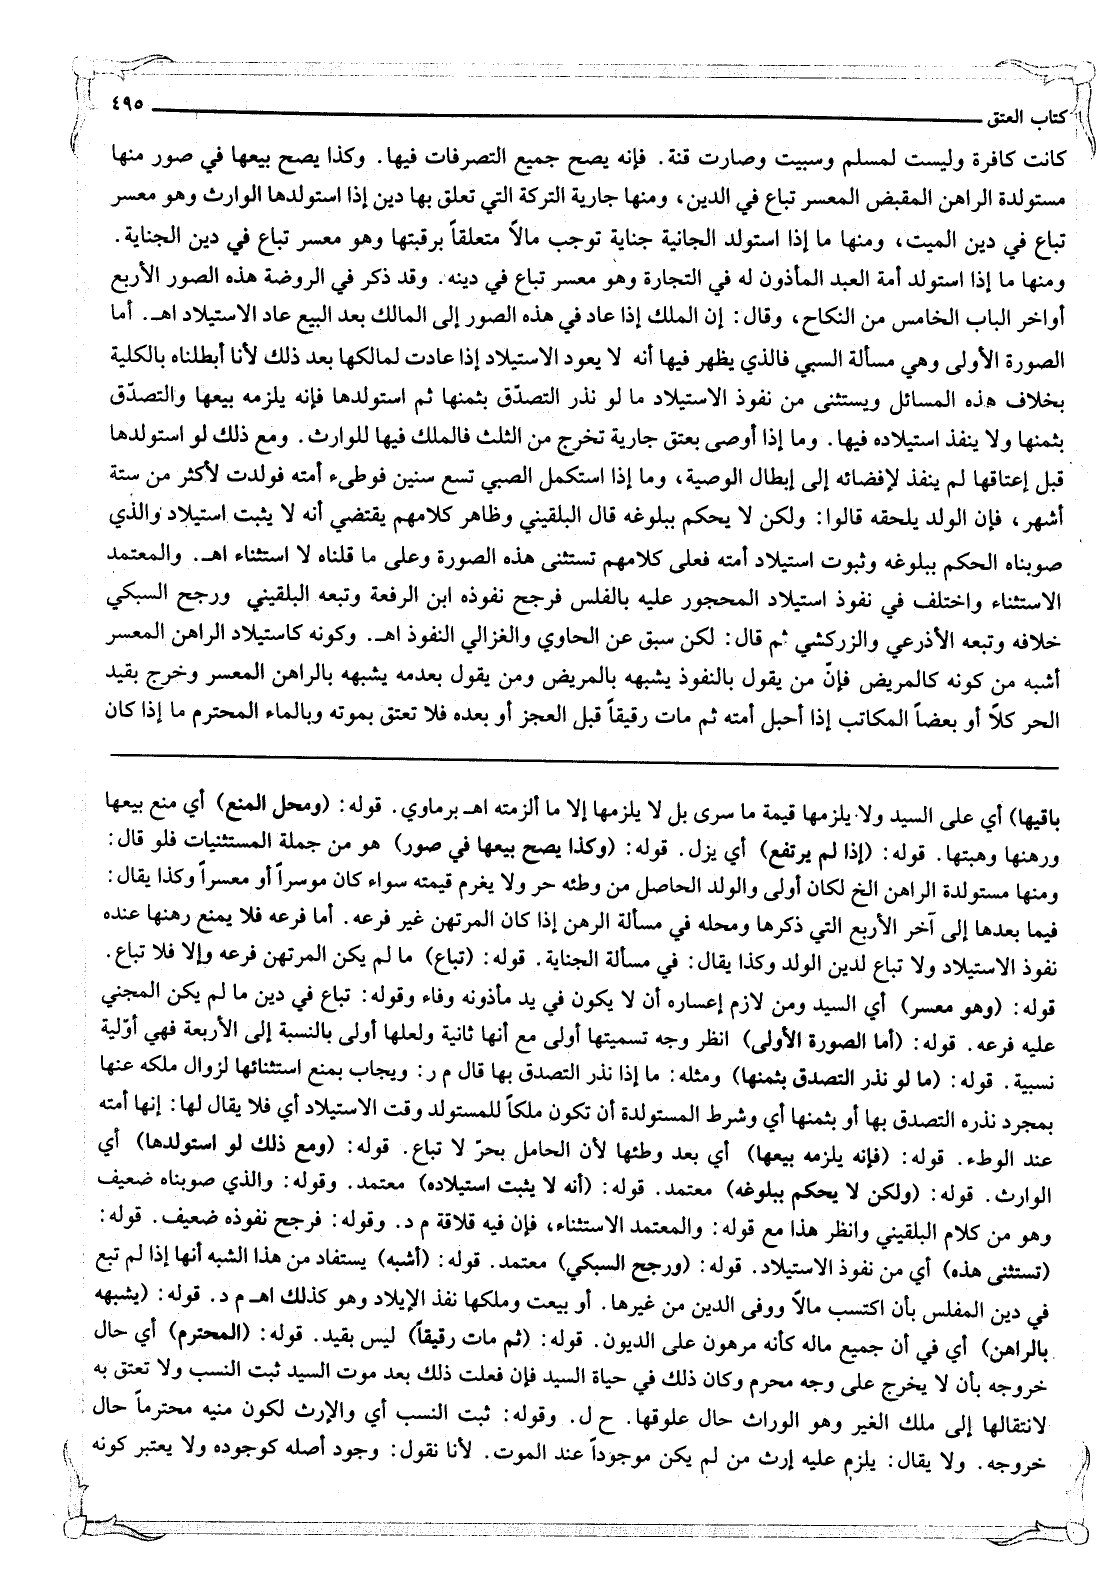 كتاب العتق ٤٩٥
كانت كافرة وليست لمسلم وسبيت وصارت قنة. فإنه يصح جميع التصرفات فيها. وكذا يصح بيعها في صور منها
مستولدة الراهن المقبض المعسر تباع في الدين، ومنها جارية التركة التي تعلق بها دين إذا استولدها الوارث وهو معسر
تباع في دين الميت، ومنها ما إذا استولد الجانية جناية توجب مالاً متعلقاً برقبتها وهو معسر تباع في دين الجناية.
ومنها ما إذا استولد أمة العبد المأذون له في التجارة وهو معسر تباع في دينه. وقد ذكر في الروضة هذه الصور الأربع
أواخر الباب الخامس من النكاح، وقال: إن الملك إذا عاد في هذه الصور إلى المالك بعد البيع عاد الاستيلاد اهـ. أما
الصورة الأولى وهي مسألة السبي فالذي يظهر فيها أنه لا يعود الاستيلاد إذا عادت لمالكها بعد ذلك لأنا أبطلناه بالكلية
بخلاف هذه المسائل ويستثنى من نفوذ الاستيلاد ما لو نذر التصدّق بثمنها ثم استولدها فإنه يلزمه بيعها والتصدّق
بثمنها ولا ينفذ استيلاده فيها. وما إذا أوصى بعتق جارية تخرج من الثلث فالملك فيها للوارث. ومع ذلك لو استولدها
قبل إعتاقها لم ينفذ لإفضائه إلى إبطال الوصية، وما إذا استكمل الصبي تسع سنين فوطىء أمته فولدت لأكثر من ستة
أشهر، فإن الولد يلحقه قالوا: ولكن لا يحكم ببلوغه قال البلقيني وظاهر كلامهم يقتضي أنه لا يثبت استيلاد والذي
صوبناه الحكم ببلوغه وثبوت استيلاد أمته فعلى كلامهم تستثنى هذه الصورة وعلى ما قلناه لا استثناء اهـ. والمعتمد
الاستثناء واختلف في نفوذ استيلاد المحجور عليه بالفلس فرجح نفوذه ابن الرفعة وتبعه البلقيني ورجح السبكي
خلافه وتبعه الأذرعي والزركشي ثم قال: لكن سبق عن الحاوي والغزالي النفوذ اهـ. وكونه كاستيلاد الراهن المعسر
أشبه من كونه كالمريض فإنّ من يقول بالنفوذ يشبهه بالمريض ومن يقول بعدمه يشبهه بالراهن المعسر وخرج بقيد
الحر كلاً أو بعضاً المكاتب إذا أحبل أمته ثم مات رقيقاً قبل العجز أو بعده فلا تعتق بموته وبالماء المحترم ما إذا كان
باقيها) أي على السيد ولا يلزمها قيمة ما سرى بل لا يلزمها إلا ما ألزمته اهـ برماوي. قوله: (ومحل المنع) أي منع بيعها
ورهنها وهبتها. قوله: (إذا لم يرتفع) أي يزل. قوله: (وكذا يصح بيعها في صور) هو من جملة المستثنيات فلو قال:
ومنها مستولدة الراهن الخ لكان أولى والولد الحاصل من وطئه حر ولا يغرم قيمته سواء كان موسراً أو معسراً وكذا يقال:
فيما بعدها إلى آخر الأربع التي ذكرها ومحله في مسألة الرهن إذا كان المرتهن غير فرعه. أما فرعه فلا يمنع رهنها عنده
نفوذ الاستيلاد ولا تباع لدين الولد وكذا يقال: في مسألة الجناية. قوله: (تباع) ما لم يكن المرتهن فرعه وإلا فلا تباع.
قوله: (وهو معسر) أي السيد ومن لازم إعساره أن لا يكون في يد مأذونه وفاء وقوله: تباع في دين ما لم يكن المجني
عليه فرعه. قوله: (أما الصورة الأولى) انظر وجه تسميتها أولى مع أنها ثانية ولعلها أولى بالنسبة إلى الأربعة فهي أوّلية
نسبية. قوله: (ما لو نذر التصدق بثمنها) ومثله: ما إذا نذر التصدق بها قال م ر: ويجاب بمنع استثنائها لزوال ملكه عنها
بمجرد نذره التصدق بها أو بثمنها أي وشرط المستولدة أن تكون ملكاً للمستولد وقت الاستيلاد أي فلا يقال لها: إنها أمته
عند الوطء. قوله: (فإنه يلزمه بيعها) أي بعد وطئها لأن الحامل بحرّ لا تباع. قوله: (ومع ذلك لو استولدها) أي
الوارث. قوله: (ولكن لا يحكم ببلوغه) معتمد. قوله: (أنه لا يثبت استيلاده) معتمد. وقوله: والذي صوبناه ضعيف
وهو من كلام البلقيني وانظر هذا مع قوله: والمعتمد الاستثناء، فإن فيه قلاقة م د. وقوله: فرجح نفوذه ضعيف. قوله:
(تستثنى هذه) أي من نفوذ الاستيلاد. قوله: (ورجح السبكي) معتمد. قوله: (أشبه) يستفاد من هذا الشبه أنها إذا لم تبع
في دين المفلس بأن اكتسب مالاً ووفى الدين من غيرها. أو بيعت وملكها نفذ الإيلاد وهو كذلك اهـ م د. قوله: (يشبهه
بالراهن) أي في أن جميع ماله كأنه مرهون على الديون. قوله: (ثم مات رقيقاً) ليس بقيد. قوله: (المحترم) أي حال
خروجه بأن لا يخرج على وجه محرم وكان ذلك في حياة السيد فإن فعلت ذلك بعد موت السيد ثبت النسب ولا تعتق به
لانتقالها إلى ملك الغير وهو الوراث حال علوقها. ح ل. وقوله: ثبت النسب أي والإرث لكون منيه محترماً حال
خروجه. ولا يقال: يلزم عليه إرث من لم يكن موجوداً عند الموت. لأنا نقول: وجود أصله كوجوده ولا يعتبر كونه